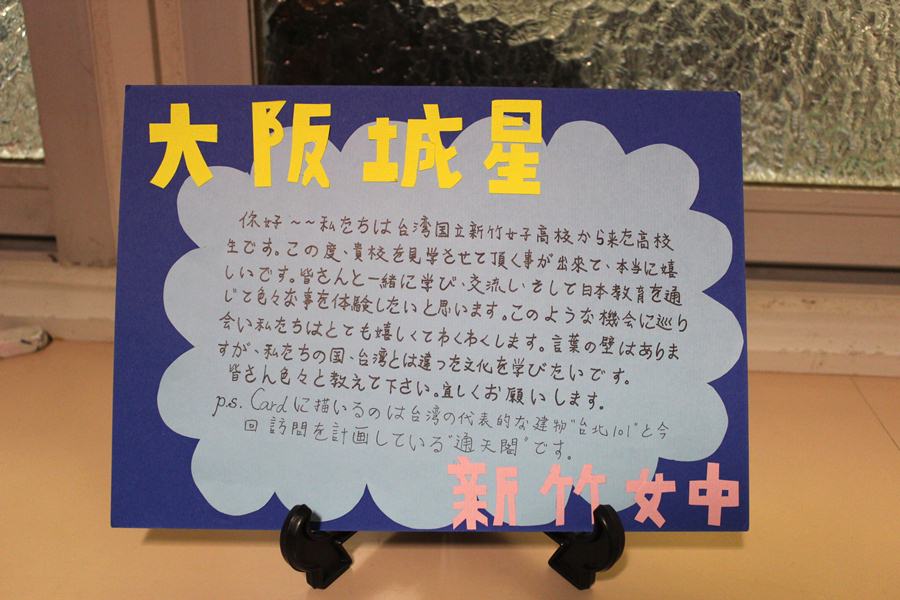 大阪城星
你好~~私たちは台湾国立新竹女子高校から来た高校
生です。この度、貴校を見学させて頂く事が出来て、本当に嬉
しいです。皆さんと一緒に学び、交流し、そして日本教育を通
じて色々な事を体験したいと思います。このような機会に巡り
会い私たちはとても嬉しくてわくわくします。言葉の壁はありま
すが、私たちの国、台湾とは違った文化を学びたいです。
皆さん色々と教えて下さい。宜しくお願いします。
p.s. Cardに描いるのは台湾の代表的な建物"台北101"と今
回訪問を計画している"通天閣"です。
新竹女中